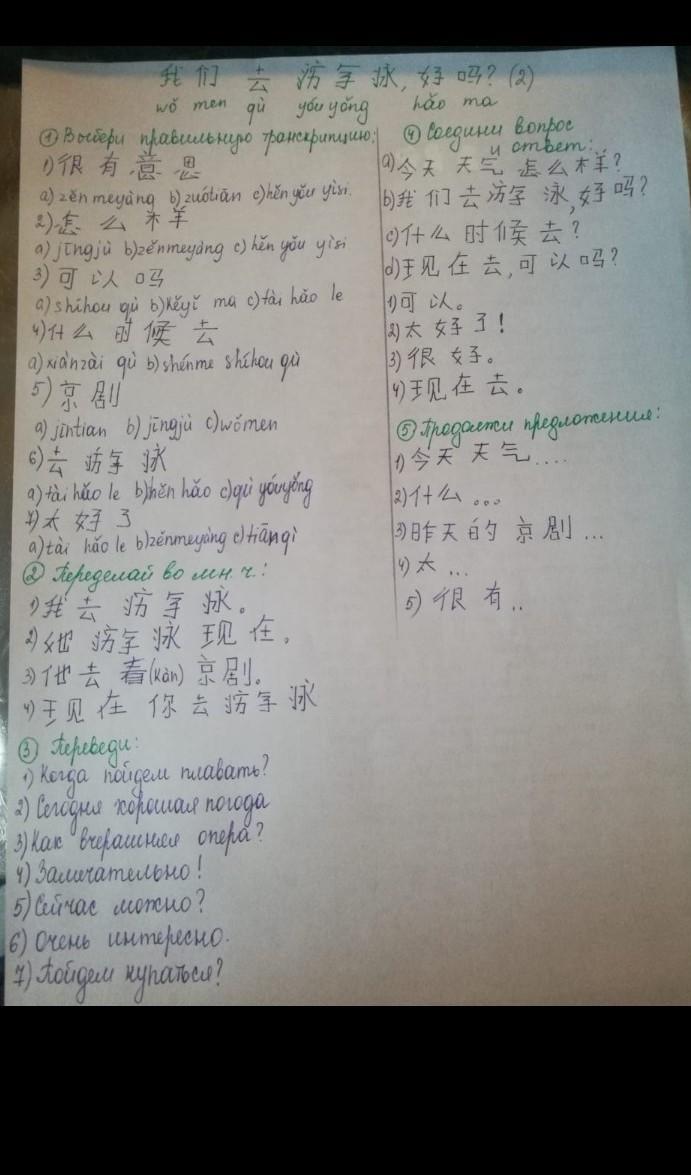 我们 去 游泳, 好吗? (2)
wǒ men qù yóu yǒng hǎo ma
① Выбери правильную транскрипцию:
1) 很 有 意 思
a) zěn meyàng b) zuótiān c) hěn yǒu yìsi.
2) 怎 么 样
a) jīngjù b) zěnmeyàng c) hěn yǒu yìsi
3) 可 以 吗
a) shíhou qù b) kěyǐ ma c) tài hǎo le
4) 什么 时 候 去
a) xiànzài qù b) shénme shíhou qù
5) 京 剧
a) jīntian b) jīngjù c) wǒmen
6) 去 游 泳
a) tài hǎo le b) hěn hǎo c) qù yóuyǒng
7) 太 好 了
a) tài hǎo le b) zěnmeyàng c) tiānqì
② Переделай во мн. ч.:
1) 我 去 游 泳。
2) 她 游 泳 现 在。
3) 他 去 看(kàn) 京 剧。
4) 现 在 你 去 游 泳
③ Переведи:
1) Когда пойдем плавать?
2) Сегодня хорошая погода
3) Как вчерашняя опера?
4) Замечательно!
5) Сейчас можно?
6) Очень интересно.
7) Пойдем купаться?
④ Соедини вопрос
и ответ:
a) 今天 天气 怎么样?
b) 我 们 去 游 泳, 好 吗?
c) 什么 时 候 去?
d) 现 在 去, 可 以 吗?
1) 可 以。
2) 太 好 了!
3) 很 好。
4) 现 在 去。
⑤ Продолжи предложения:
1) 今天 天 气....
2) 什么 ...
3) 昨天 的 京 剧 ...
4) 太 ...
5) 很 有 ..